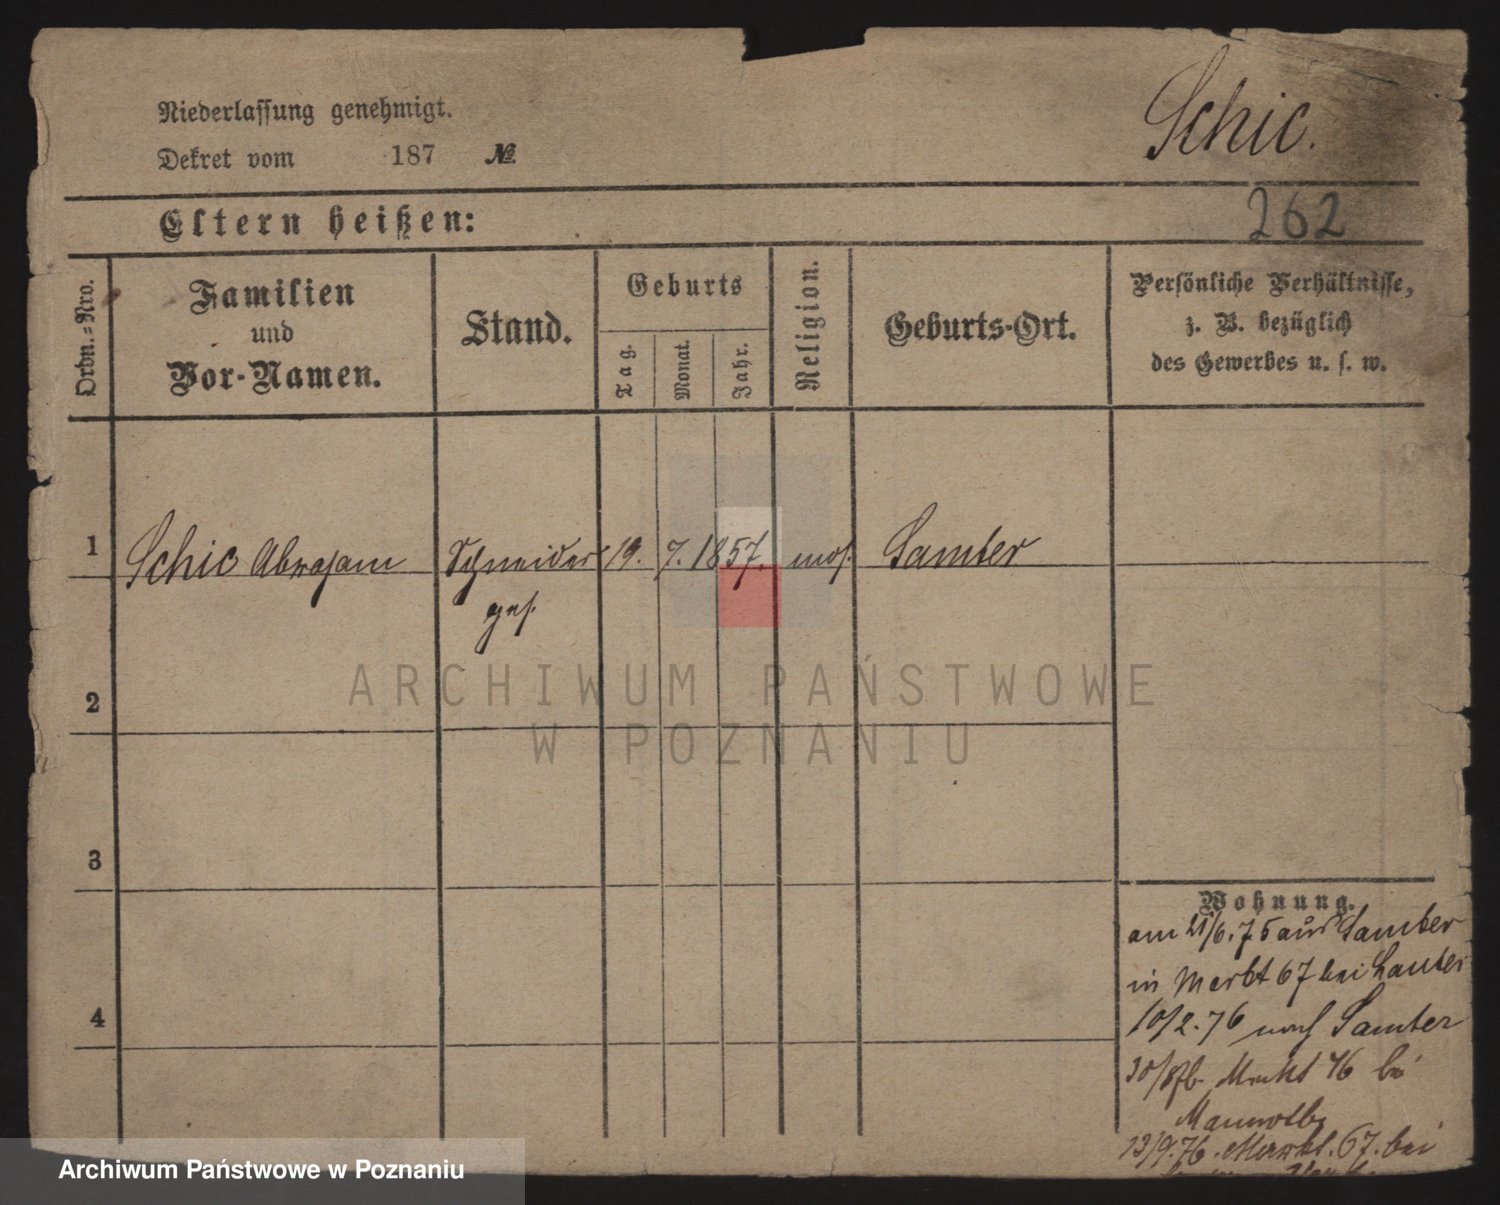 Niederlassung genehmigt.
Dekret vom 187 №
Schic.
262
Eltern heißen:
Ordn.=Nro.
Familien
und
Vor-Namen.
Stand.
Geburts
Tag.
Monat.
Jahr.
Religion.
Geburts-Ort.
Persönliche Verhältnisse,
z. B. bezüglich
des Gewerbes u. s. w.
1 Schic Abraham Schneider 19. 7. 1857. mos. Samter
ges.
2
3
4
Wohnung.
am 21/6. 75 aus Samter
in Markt 67 bei
10/2. 76 nach Samter
Markt 76 bei
13/9. 76. Markt. 67. bei
ARCHIWUM PAŃSTWOWE
W POZNANIU
Archiwum Państwowe w Poznaniu